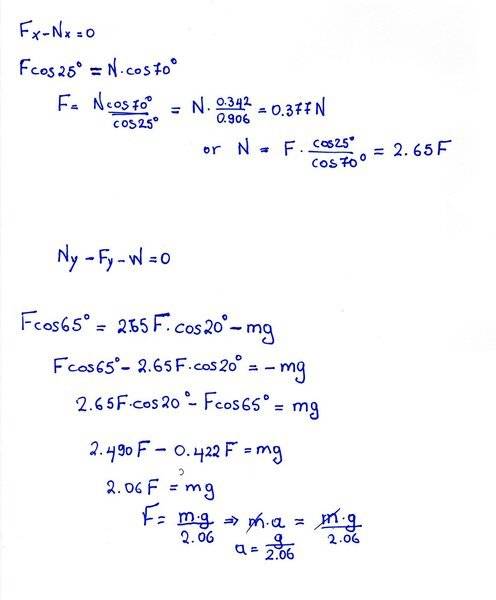 Fx-Nx=0
Fcos25° = N·cos70°
F = Ncos70°/cos25° = N·0.342/0.906 = 0.377N
or N = F·cos25°/cos70° = 2.65F
Ny-Fy-W=0
Fcos65° = 2.65F·cos20°-mg
Fcos65°-2.65F·cos20° = -mg
2.65F·cos20°-Fcos65° = mg
2.490F - 0.422F = mg
2.06F = mg
F = m·g/2.06 ⇒ m·a = m·g/2.06
a = g/2.06